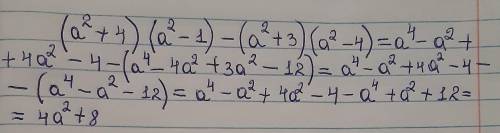 (a² + 4) (a² - 1) - (a² + 3) (a² - 4) = a⁴ - a² +
+ 4a² - 4 - (a⁴ - 4a² + 3a² - 12) = a⁴ - a² + 4a² - 4 -
- (a⁴ - a² - 12) = a⁴ - a² + 4a² - 4 - a⁴ + a² + 12 =
= 4a² + 8